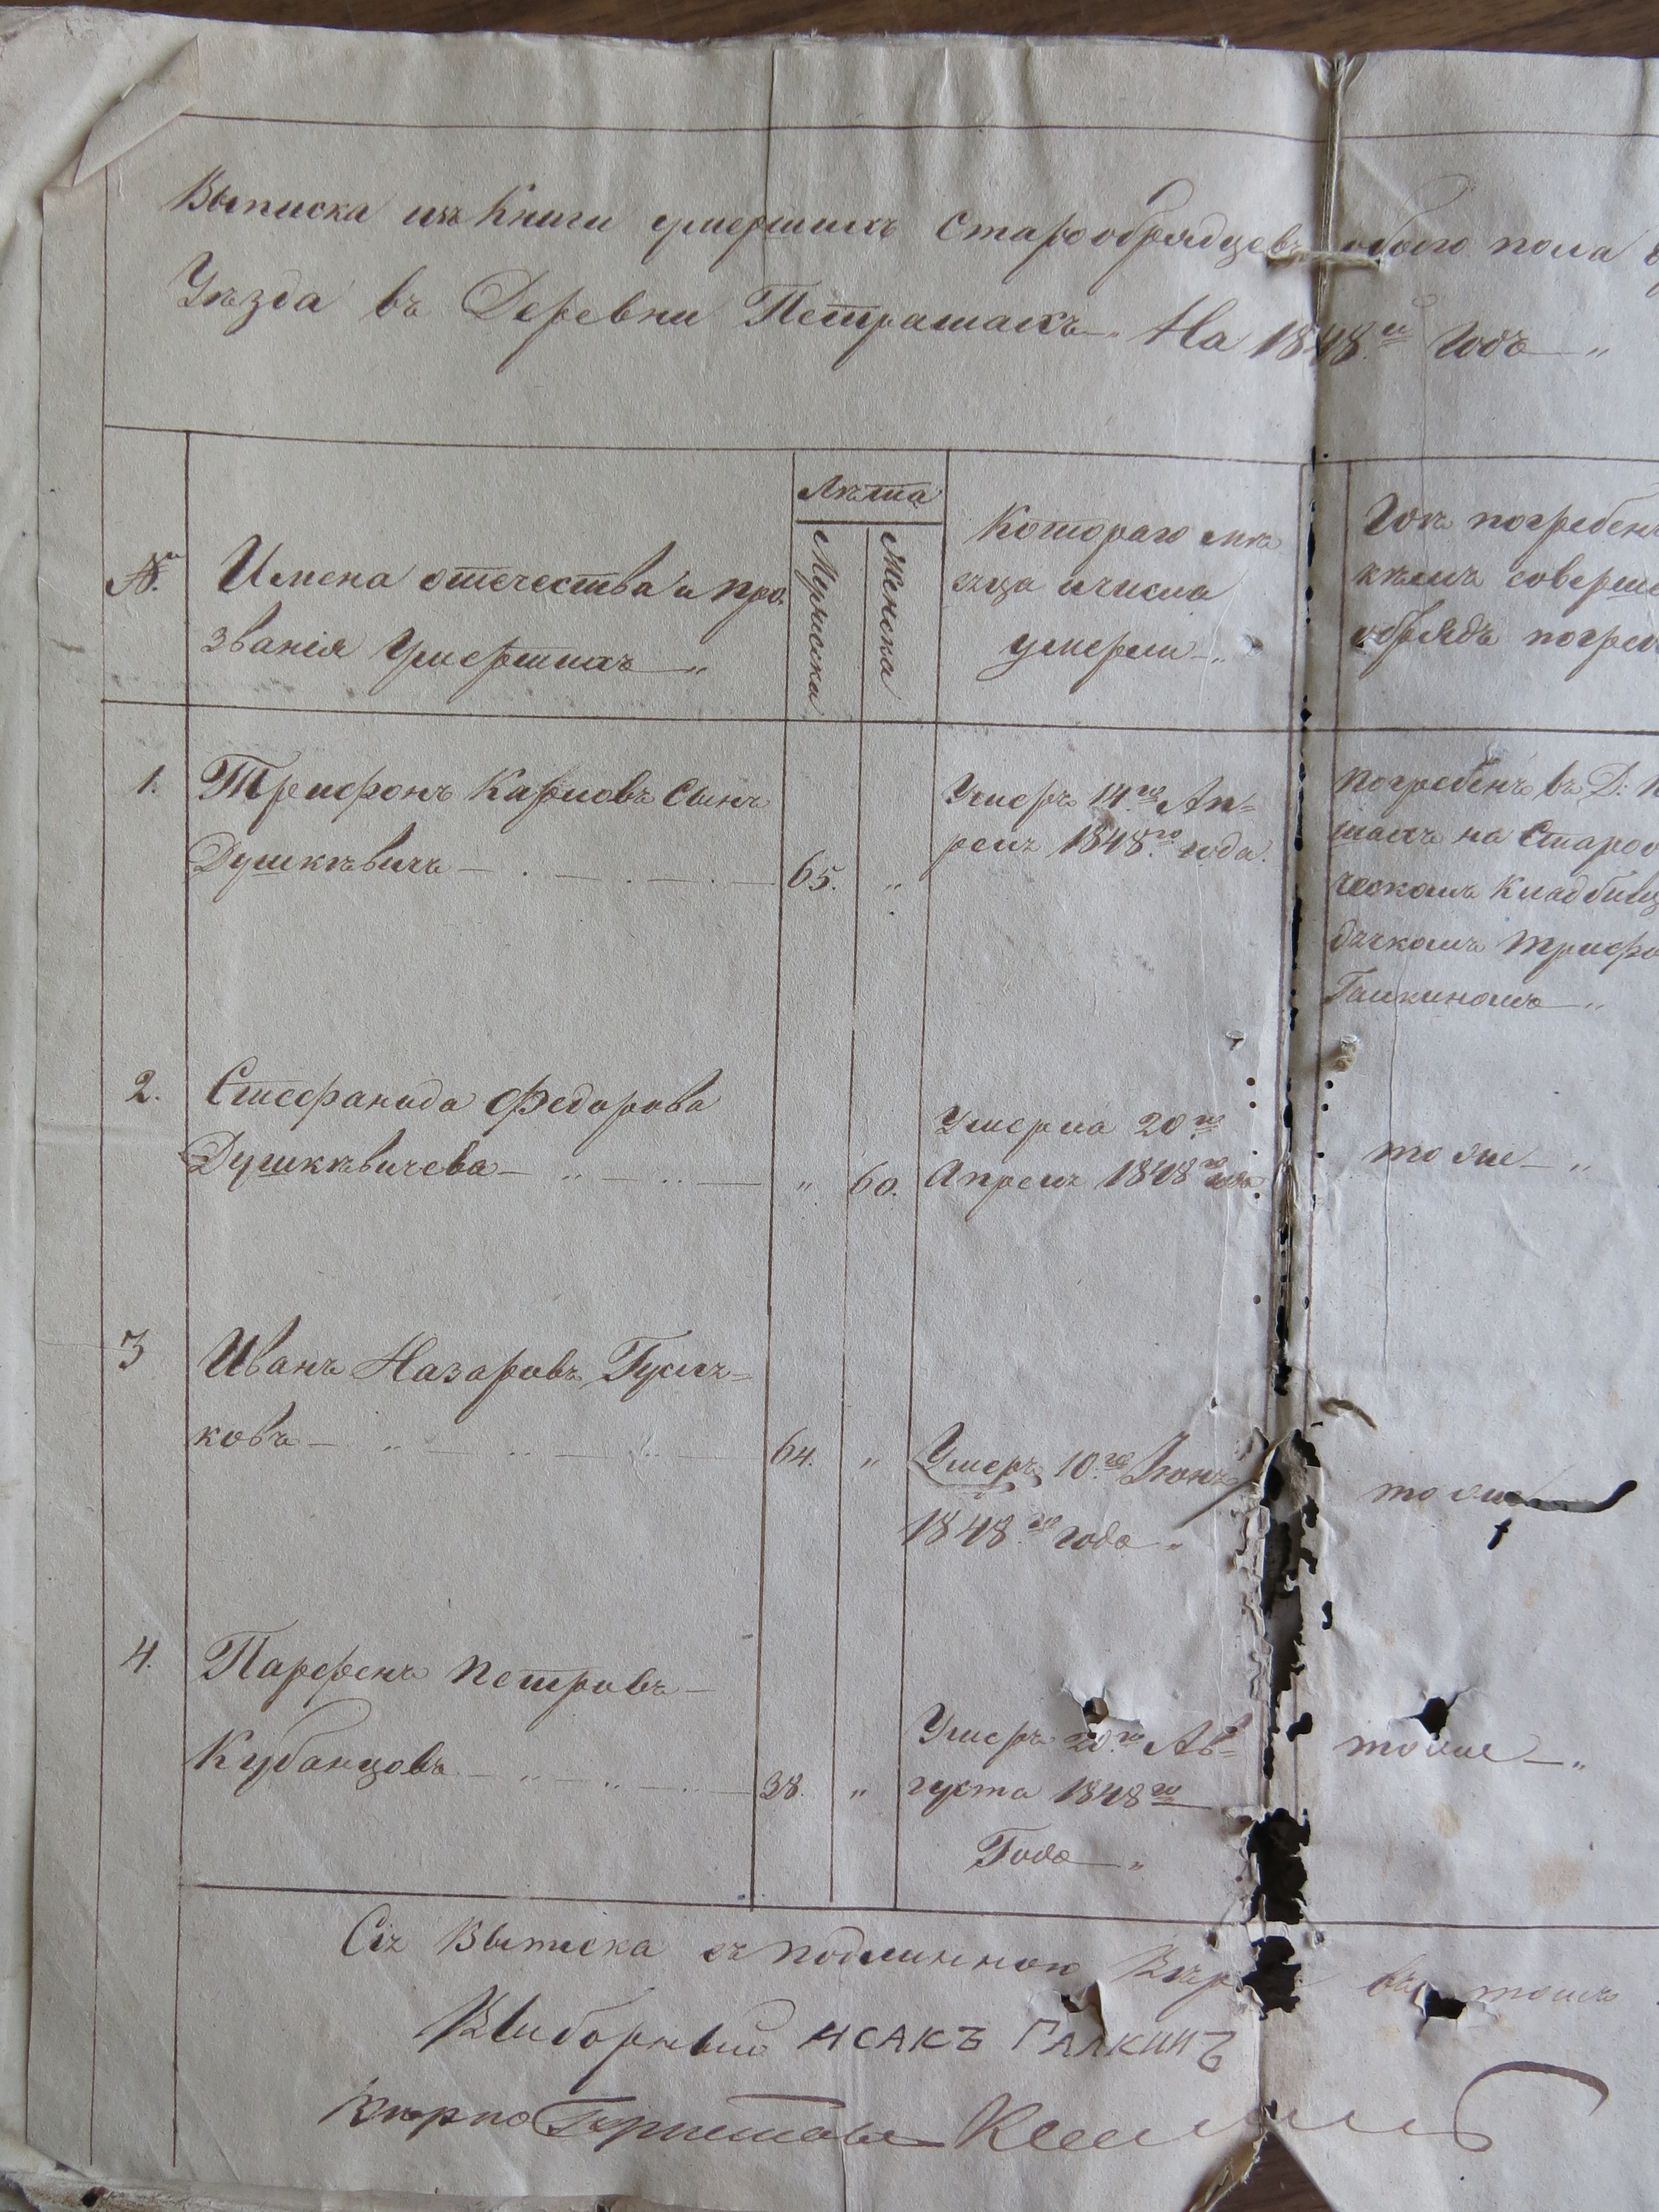 Выписка изъ Книги умершихъ Старообрядцевъ обоего пола
Уѣзда въ Деревни Петрашахъ На 1848.й Годъ „
Лѣта
№. Имена отечества и про
званія Умершихъ „
Мужеска
Женска
Котораго мѣ
сяца и числа
умерли „
Гдѣ погребен
кѣмъ соверше
обрядъ погреб
1. Трифонъ Карповъ Сынъ
Душкѣвичъ 65. „
Умеръ 14.го Ап=
реля 1848.го года.
погребенъ въ Д: П
шахъ на Староо
ческомъ Кладбищ
дьячкомъ Трифо
Галкиномъ „
2. Стефанида Федорова
Душкѣвичева „ 60.
Умерла 20.го
Апреля 1848го года
тоже „
3 Иванъ Назаровъ Гуслѣ=
ковъ 64. „
Умеръ 10.го Іюня
1848.го года „
тоже
4. Парфенъ Петровъ
Кубанцовъ 38. „
Умеръ 20.го Ав=
густа 1848го
Года „
тоже „
Сія Выписка съ подлинною Вѣр въ томъ
Выборный ИСАКЪ ГАЛКИНЪ